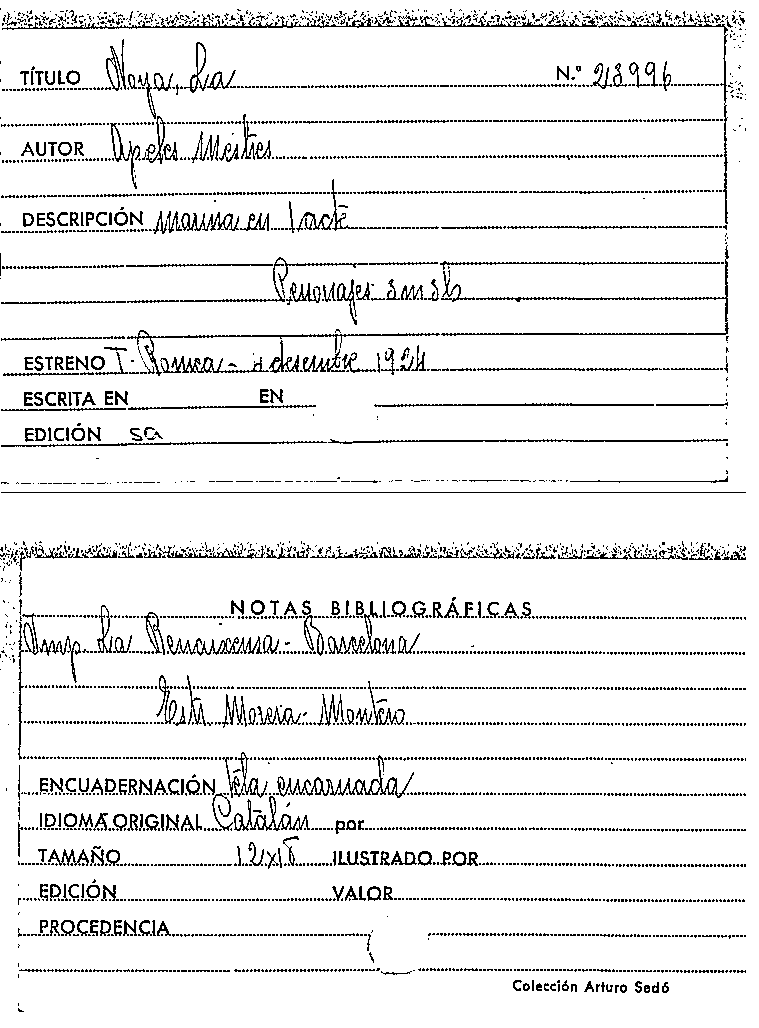 TÍTULO Noya, La N.º 23996
AUTOR Apeles Mestres
DESCRIPCIÓN Marina en 1 acte
Personajes 3m 3h
ESTRENO T. Romea - desembre 1924
ESCRITA EN EN
EDICIÓN sa
NOTAS BIBLIOGRÁFICAS
Imp. La Renaixensa - Barcelona
Estr Morera - Montero
ENCUADERNACIÓN tela encarnada
IDIOMA ORIGINAL Catalán por
TAMAÑO 12x18 ILUSTRADO POR
EDICIÓN VALOR
PROCEDENCIA
Colección Arturo Sedó